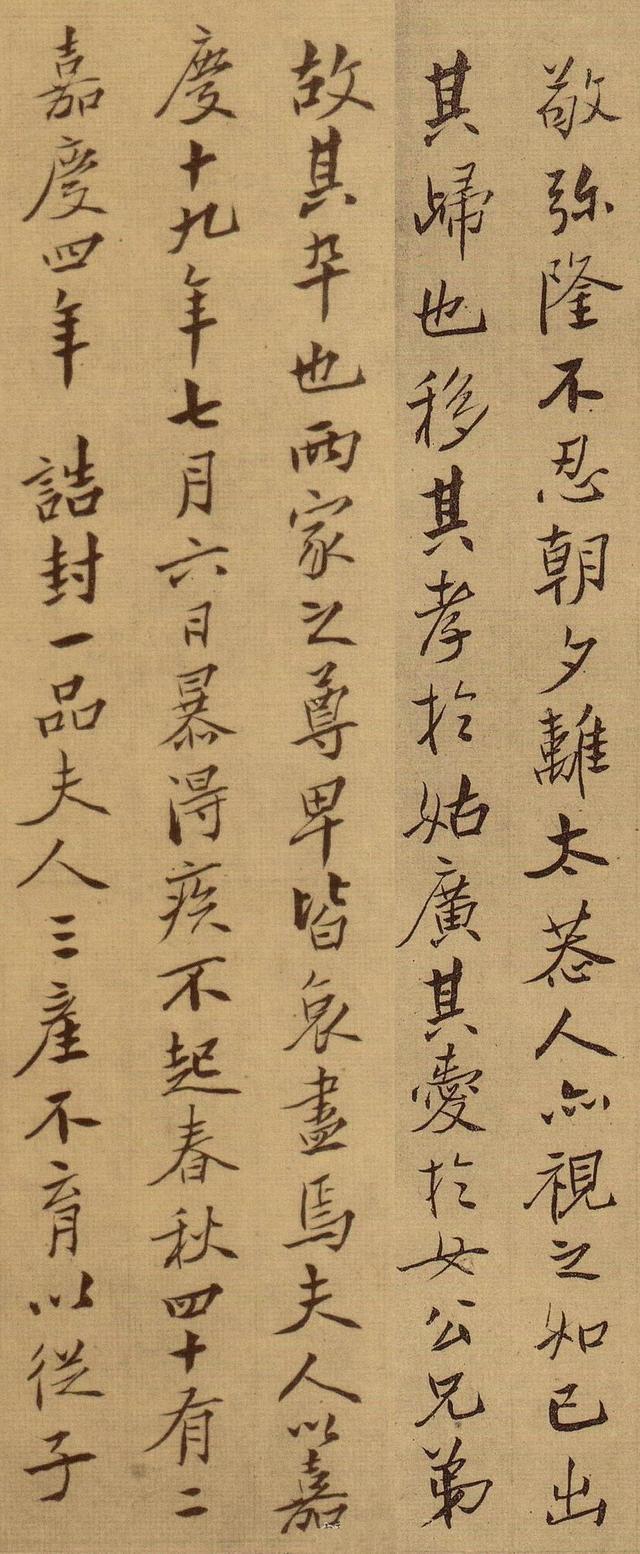 敬弥隆不忍朝夕離太恭人亦視之如已出
其歸也移其孝於姑廣其愛於女公兄弟
故其卒也兩家之尊卑皆哀盡焉夫人以嘉
慶十九年七月六日暴得疾不起春秋四十有二
嘉慶四年 誥封一品夫人三產不育以從子